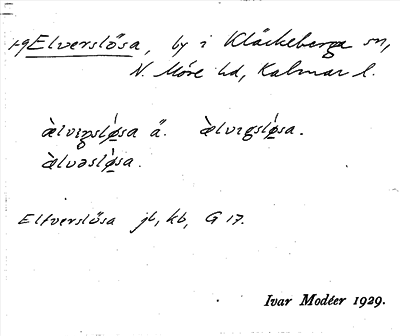 +9 Elverslösa, by i Kläckeberga sn,
N. Möre hd, Kalmar l.
æ̀lvıgslø̀sa ä. æ̀lvıgslø̀sa.
æ̀lvəslø̀sa.
Elfverslösa jb, kb, G 17.
Ivar Modéer 1929.